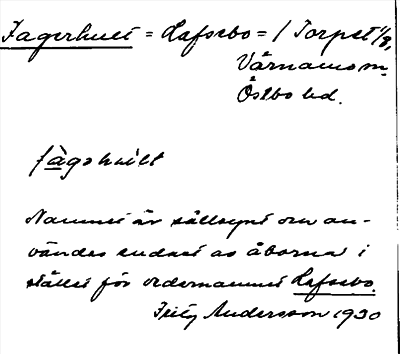 Fagerhult = Hafsebo = / Torpet 1/8,
Värnamo sn.
Östbo hd.
fàgəhult
Namnet är sällsynt och an-
vändes endast av åborna i
stället för ordernamnet Hafsebo.
Fritz Andersson 1930